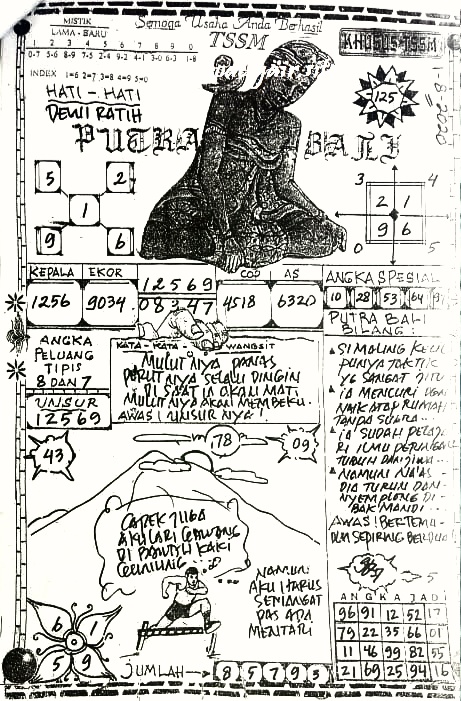 Semoga Usaha Anda Berhasil
TSSM
MISTIK
LAMA - BARU
1 2 3 4 5 6 7 8 9 0
0-7 5-6 8-9 7-5 2-4 9-2 4-1 3-0 6-3 1-8
INDEX 1=6 2=7 3=8 4=9 5=0
HATI - HATI
DEWI RATIH
KHUSUS TSSM
125
1-8-2020
PUTRA BALI
5 2
1
9 6
3 4
2 1
9 6
0 5
KEPALA EKOR
1256 9034
12569
08347
COP AS
4518 6320
ANGKA SPESIAL
10 28 53 64
PUTRA BALI
BILANG :
ANGKA
PELUANG
TIPIS
8 DAN 7
UNSUR
12569
KATA - KATA - WANGSIT
MULUTNYA PANAS
PERUTNYA SELALU DINGIN
DI SAAT IA AKAN MATI
MULUTNYA AKAN MEMBEKU.
AWAS! UNSURNYA!
SI MALING KECIL
PUNYA TAKTIK
YG SANGAT JITU
IA MENCURI
NAIK ATAP RUMAH
TANPA SUARA
IA SUDAH
RI ILMU
TUBUH DAN JIWA
NAMUN NAAS
DIA TURUN DAN
NYEMPLONG DI
BAK MANDI...
AWAS! BERTEMU
43
78
09
5
CAPEK JUGA
AKU LARI
DI KAKI
NAMUN
AKU HARUS
SEMANGAT
PAS ADA
MENTARI
6 1
5 9
JUMLAH → 8 5 7 9 3
ANGKA JADI
96 91 12 52 17
79 22 35 66 01
11 46 99 82 55
21 69 25 94 16